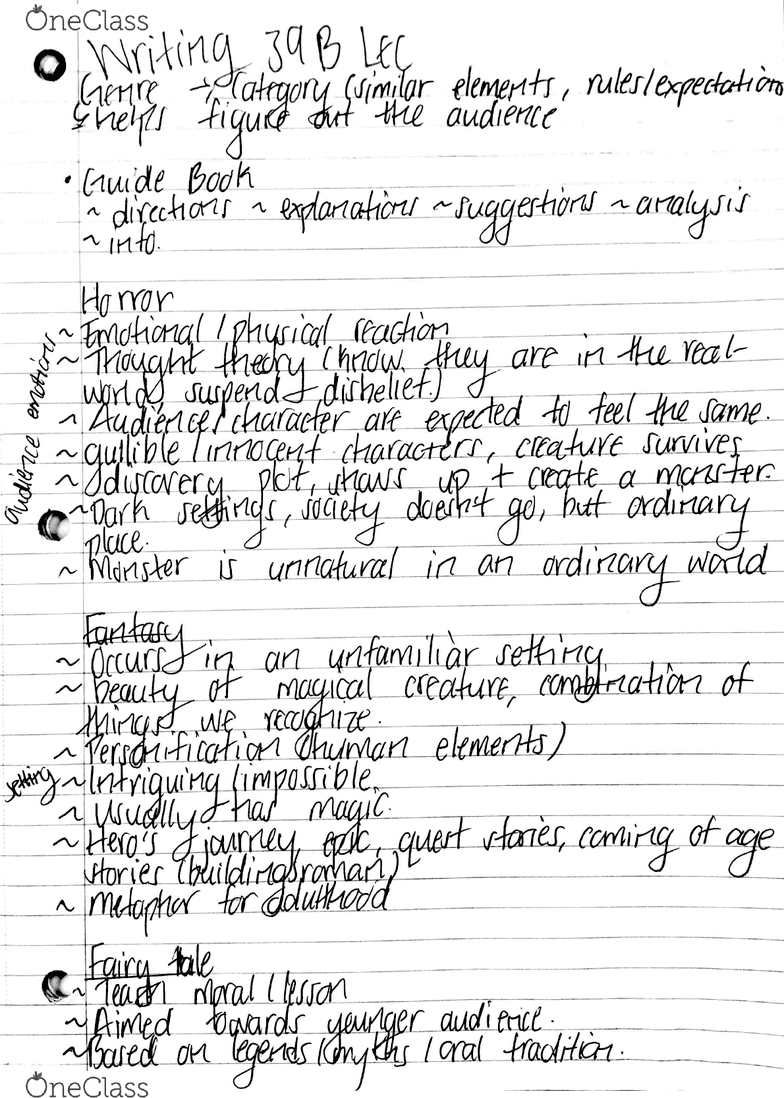 OneClass
Writing 39B LEC
Genre → Category (similar elements, rules/expectations
↳ helps figure out the audience
• Guide Book
~ directions ~ explanations ~ suggestions ~ analysis
~ info.
Horror
~ Emotional / physical reaction
~ Thought theory (know they are in the real-
world, suspend disbelief.)
~ Audience/character are expected to feel the same.
~ gullible / innocent characters, creature survives
~ discovery plot, shows up + create a monster.
~ Dark settings, society doesn't go, but ordinary
place.
~ Monster is unnatural in an ordinary world
Audience emotions
Fantasy
~ Occurs in an unfamiliar setting
~ beauty of magical creature, combination of
things we recognize.
~ Personification (human elements)
setting ~ Intriguing / impossible
~ usually has magic.
~ Hero's journey, epic, quest stories, coming of age
stories (buildingsroman)
~ metaphor for adulthood
Fairy tale
~ Teach moral / lesson
~ Aimed towards younger audience.
~ Based on legends / myths / oral tradition.
OneClass